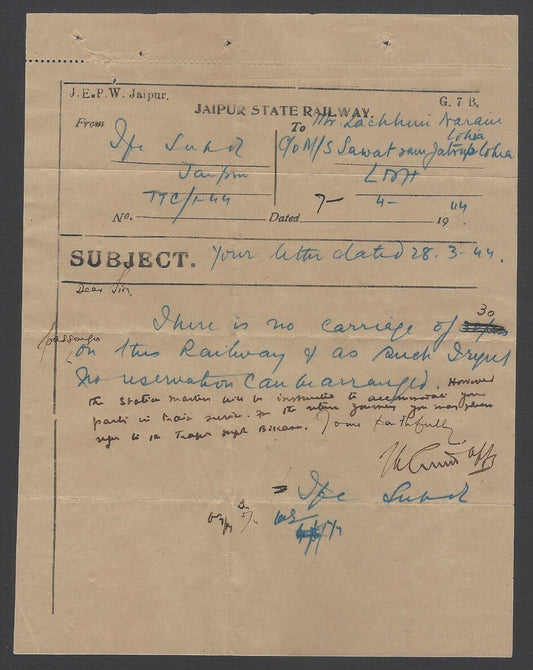 J.E.P.W. Jaipur.
G. 7 B.
JAIPUR STATE RAILWAY.
From
To
Mr. Lachhmi Narain
Lohia
C/o M/S Sawat Lohia
Supdt
Jaipur
TTC/1-44
No.
Dated 7- 4- 19 44
SUBJECT. Your letter dated 28.3.44.
Dear Sir,
There is no carriage of 30
passenger
on this Railway & as such I regret
no reservation can be arranged. However
the Station Master will be instructed to accommodate your
party in train service. For the return journey you may please
refer to
Yours faithfully
Supdt